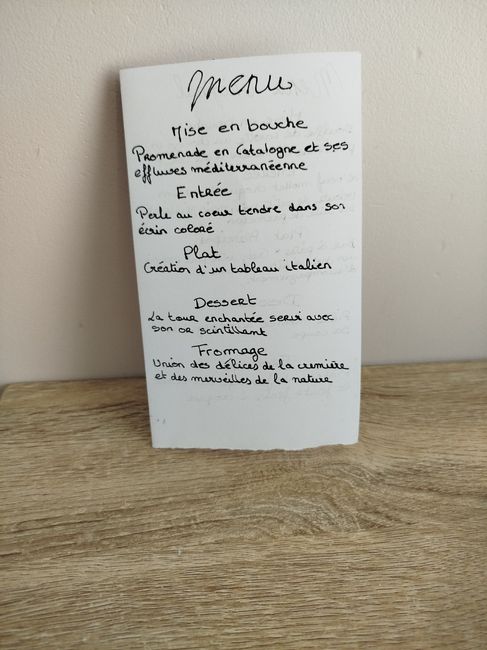 Menu
Mise en bouche
Promenade en Catalogne et ses
effluves méditerranéenne
Entrée
Perle au coeur tendre dans son
écrin coloré
Plat
Création d'un tableau italien
Dessert
La tour enchantée servi avec
son or scintillant
Fromage
Union des délices de la crémière
et des merveilles de la nature